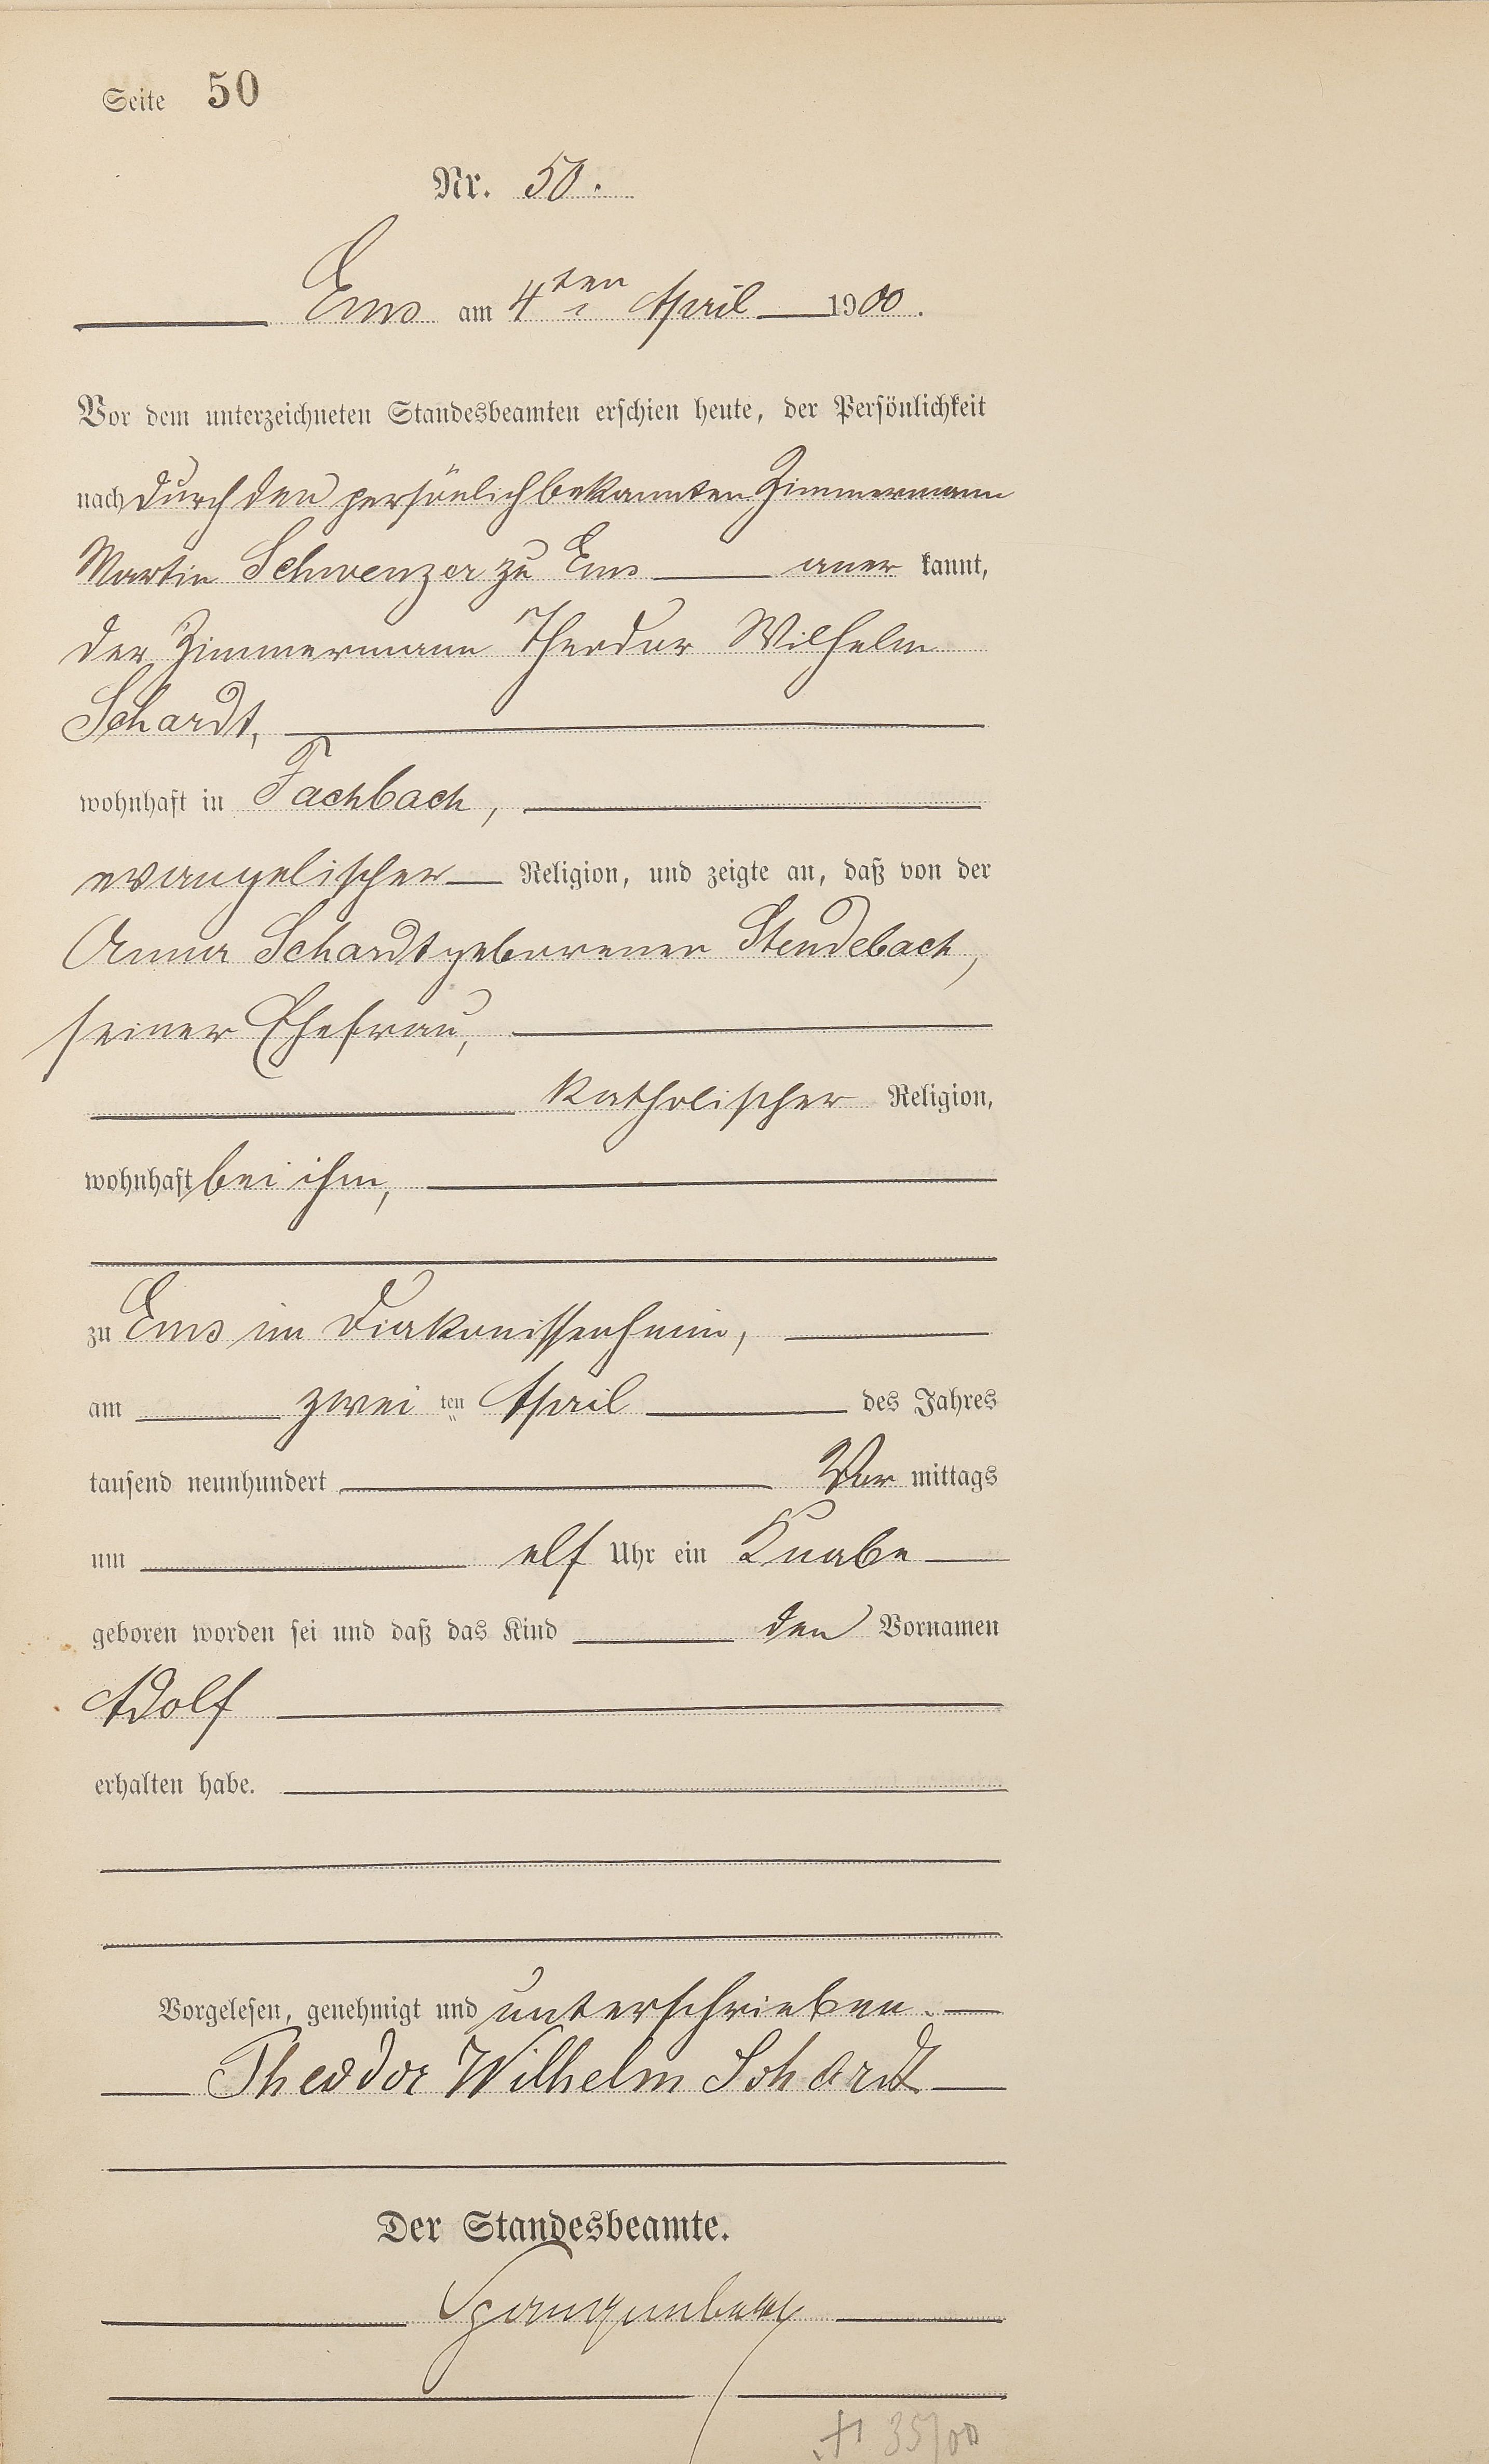 Seite 50
Nr. 50.
Ems am 4ten April 1900.
Vor dem unterzeichneten Standesbeamten erschien heute, der Persönlichkeit
nach durch den persönlich bekannten Zimmermann
Martin Schwenzer zu Ems aner kannt,
der Zimmermann Theodor Wilhelm
Schardt,
wohnhaft in Fachbach,
evangelischer Religion, und zeigte an, daß von der
Anna Schardt geborenen Stendebach,
seiner Ehefrau,
katholischer Religion,
wohnhaft bei ihm,
zu Ems im Diakonissenheim,
am zwei ten April des Jahres
tausend neunhundert Vor mittags
um elf Uhr ein Knabe
geboren worden sei und daß das Kind den Vornamen
Adolf
erhalten habe.
Vorgelesen, genehmigt und unterschrieben.
Theodor Wilhelm Schardt
Der Standesbeamte.
Spangenberg
† 35/00